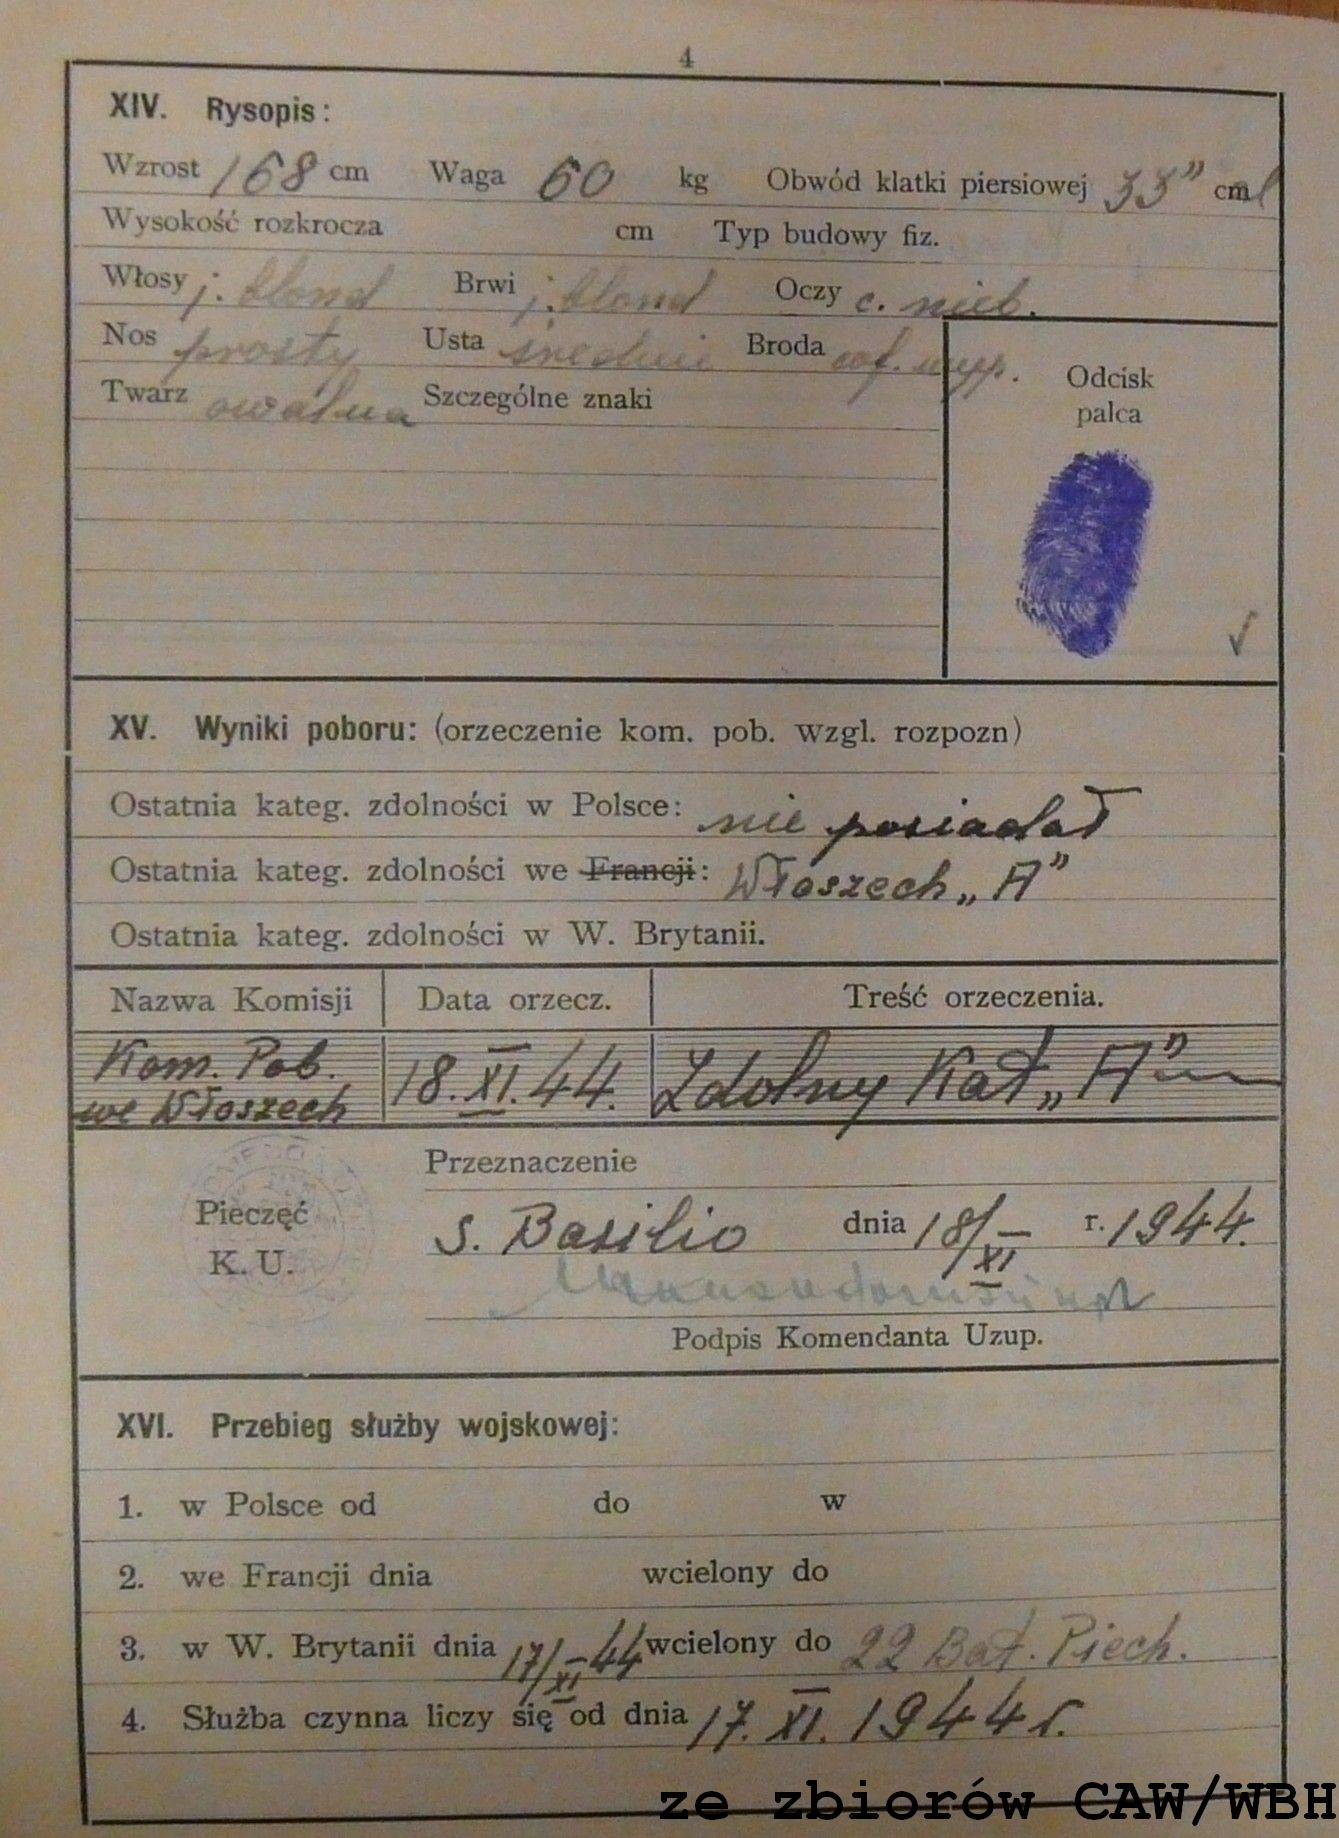 4
XIV. Rysopis:
Wzrost 168 cm Waga 60 kg Obwód klatki piersiowej 33" cm
Wysokość rozkrocza cm Typ budowy fiz.
Włosy j. blond Brwi j. blond Oczy c. nieb.
Nos prosty Usta średnie Broda wyp.
Twarz owalna Szczególne znaki
Odcisk
palca
XV. Wyniki poboru: (orzeczenie kom. pob. wzgl. rozpozn)
Ostatnia kateg. zdolności w Polsce: nie posiadał
Ostatnia kateg. zdolności we Francji: Włoszech „A”
Ostatnia kateg. zdolności w W. Brytanii.
Nazwa Komisji Data orzecz. Treść orzeczenia.
Kom. Pob.
we Włoszech 18.XI.44. Zdolny Kat „A”
Przeznaczenie
Pieczęć
K. U.
S. Basilio dnia 18/XI r. 1944.
Podpis Komendanta Uzup.
XVI. Przebieg służby wojskowej:
1. w Polsce od do w
2. we Francji dnia wcielony do
3. w W. Brytanii dnia 17/XI 44 wcielony do 22 Bat. Piech.
4. Służba czynna liczy się od dnia 17.XI.1944 r.
ze zbiorów CAW/WBH